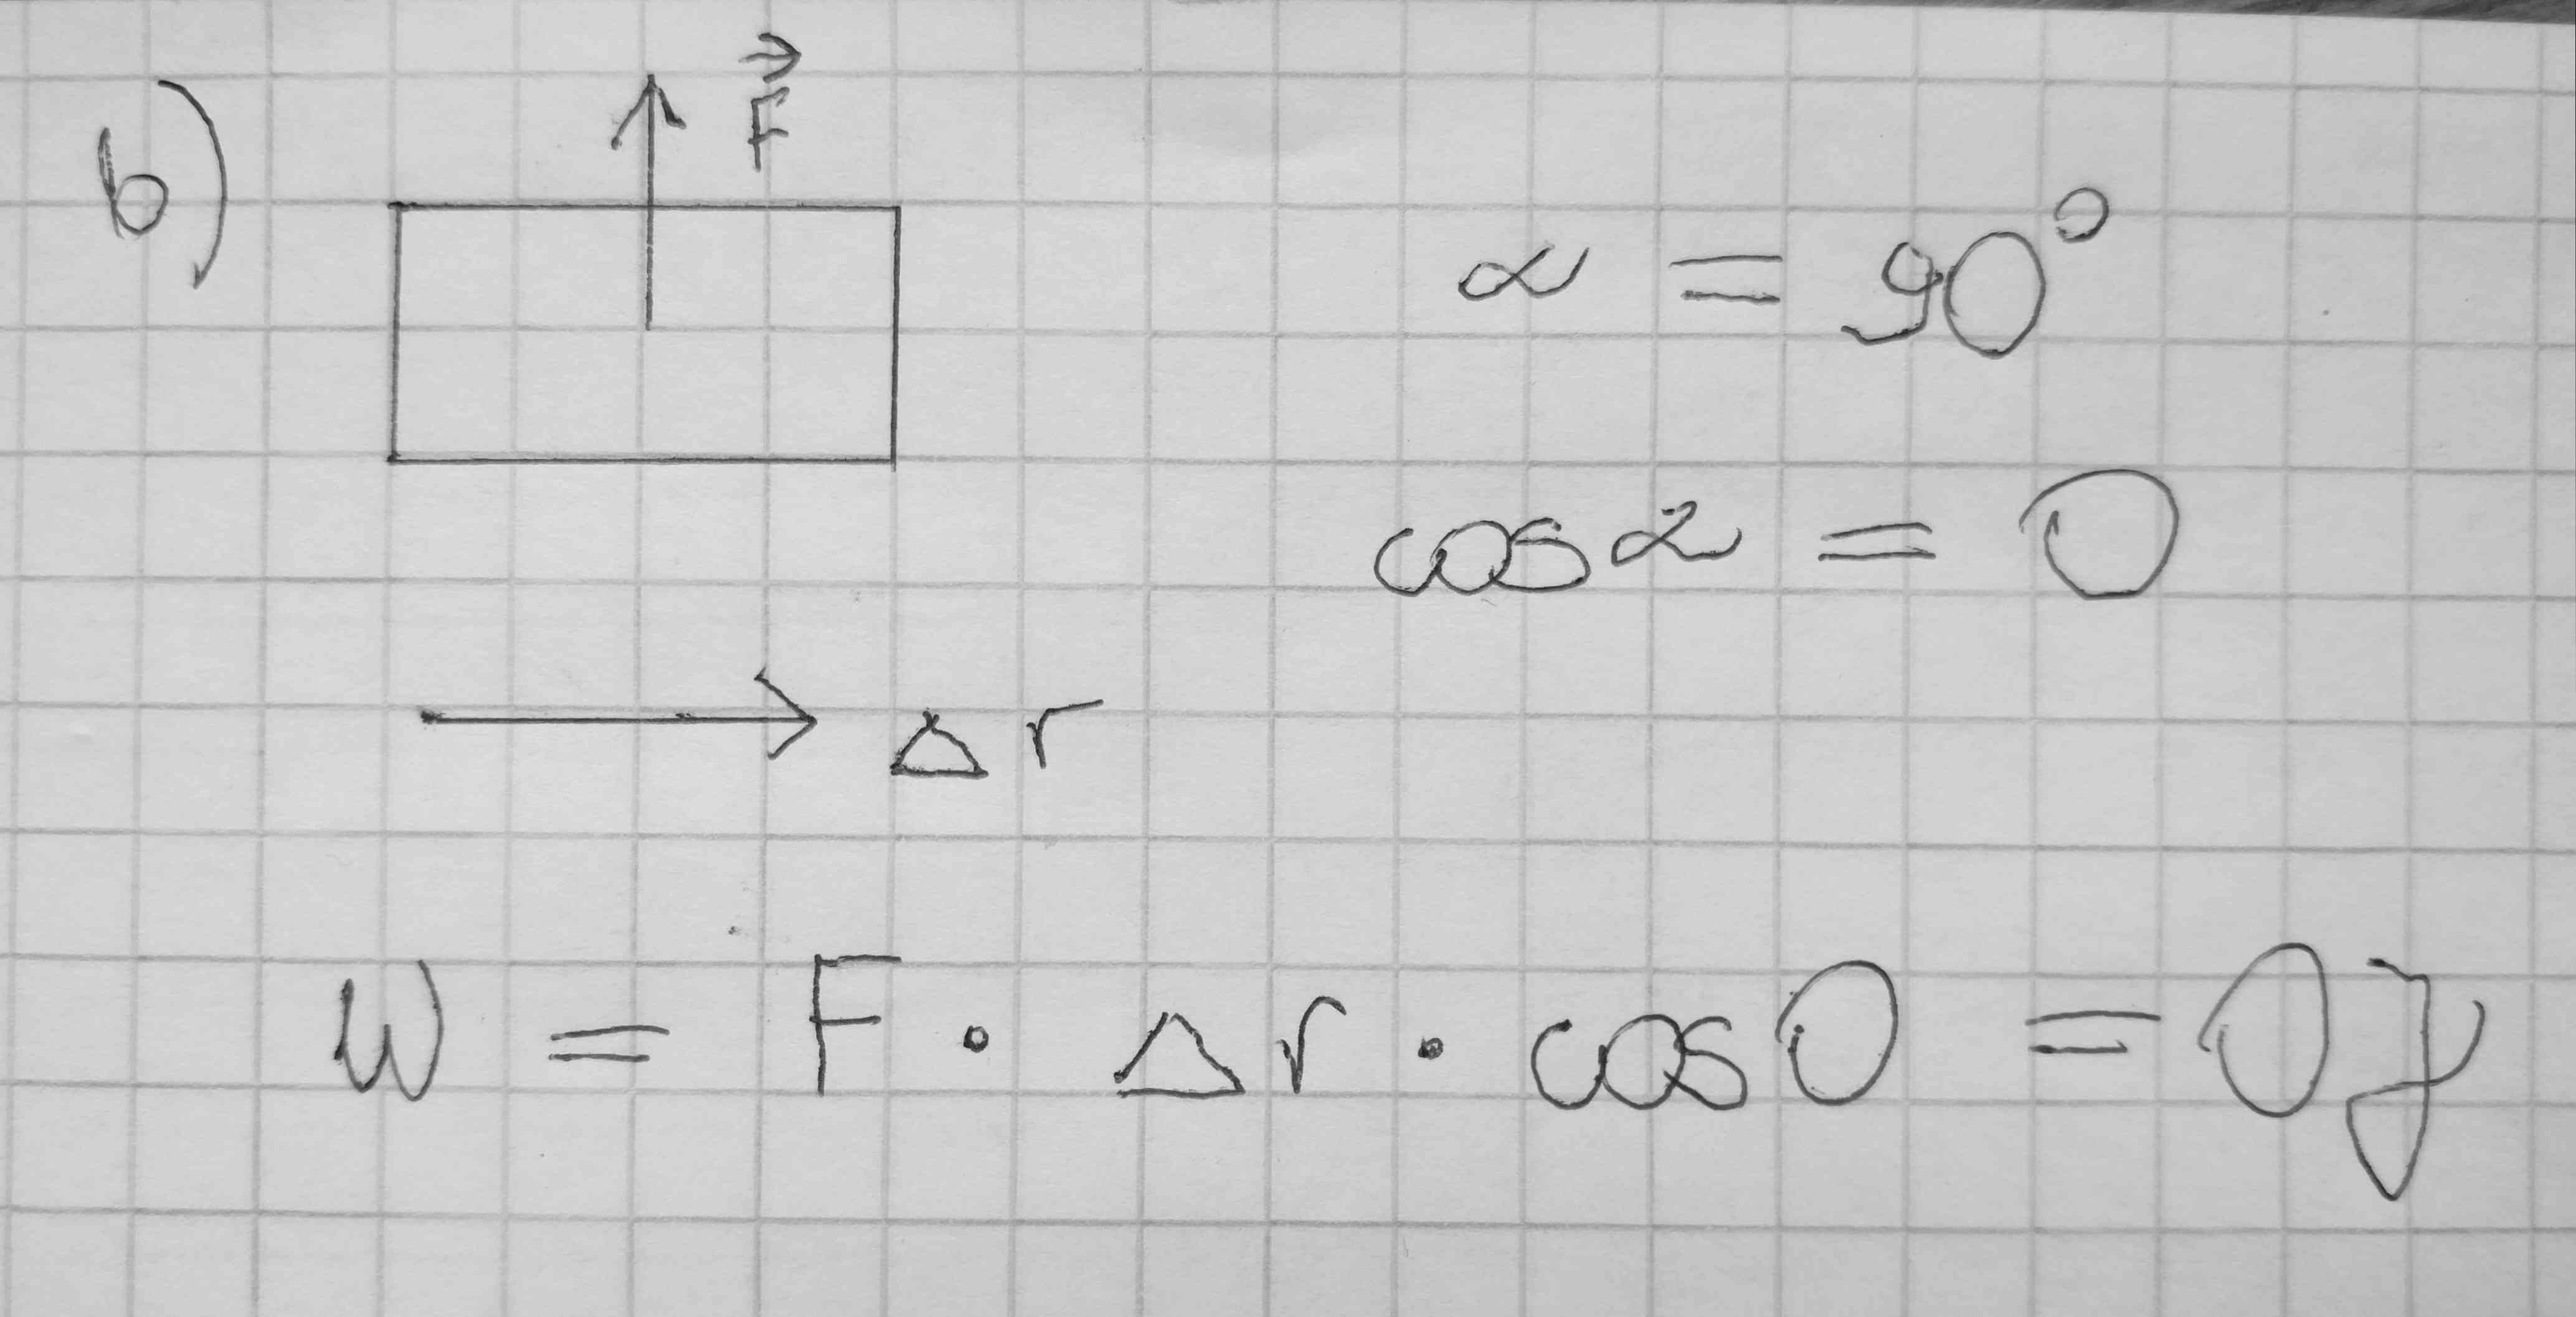 b)
F⃗
α = 90°
cos α = 0
Δr
W = F · Δr · cos0 = 0J